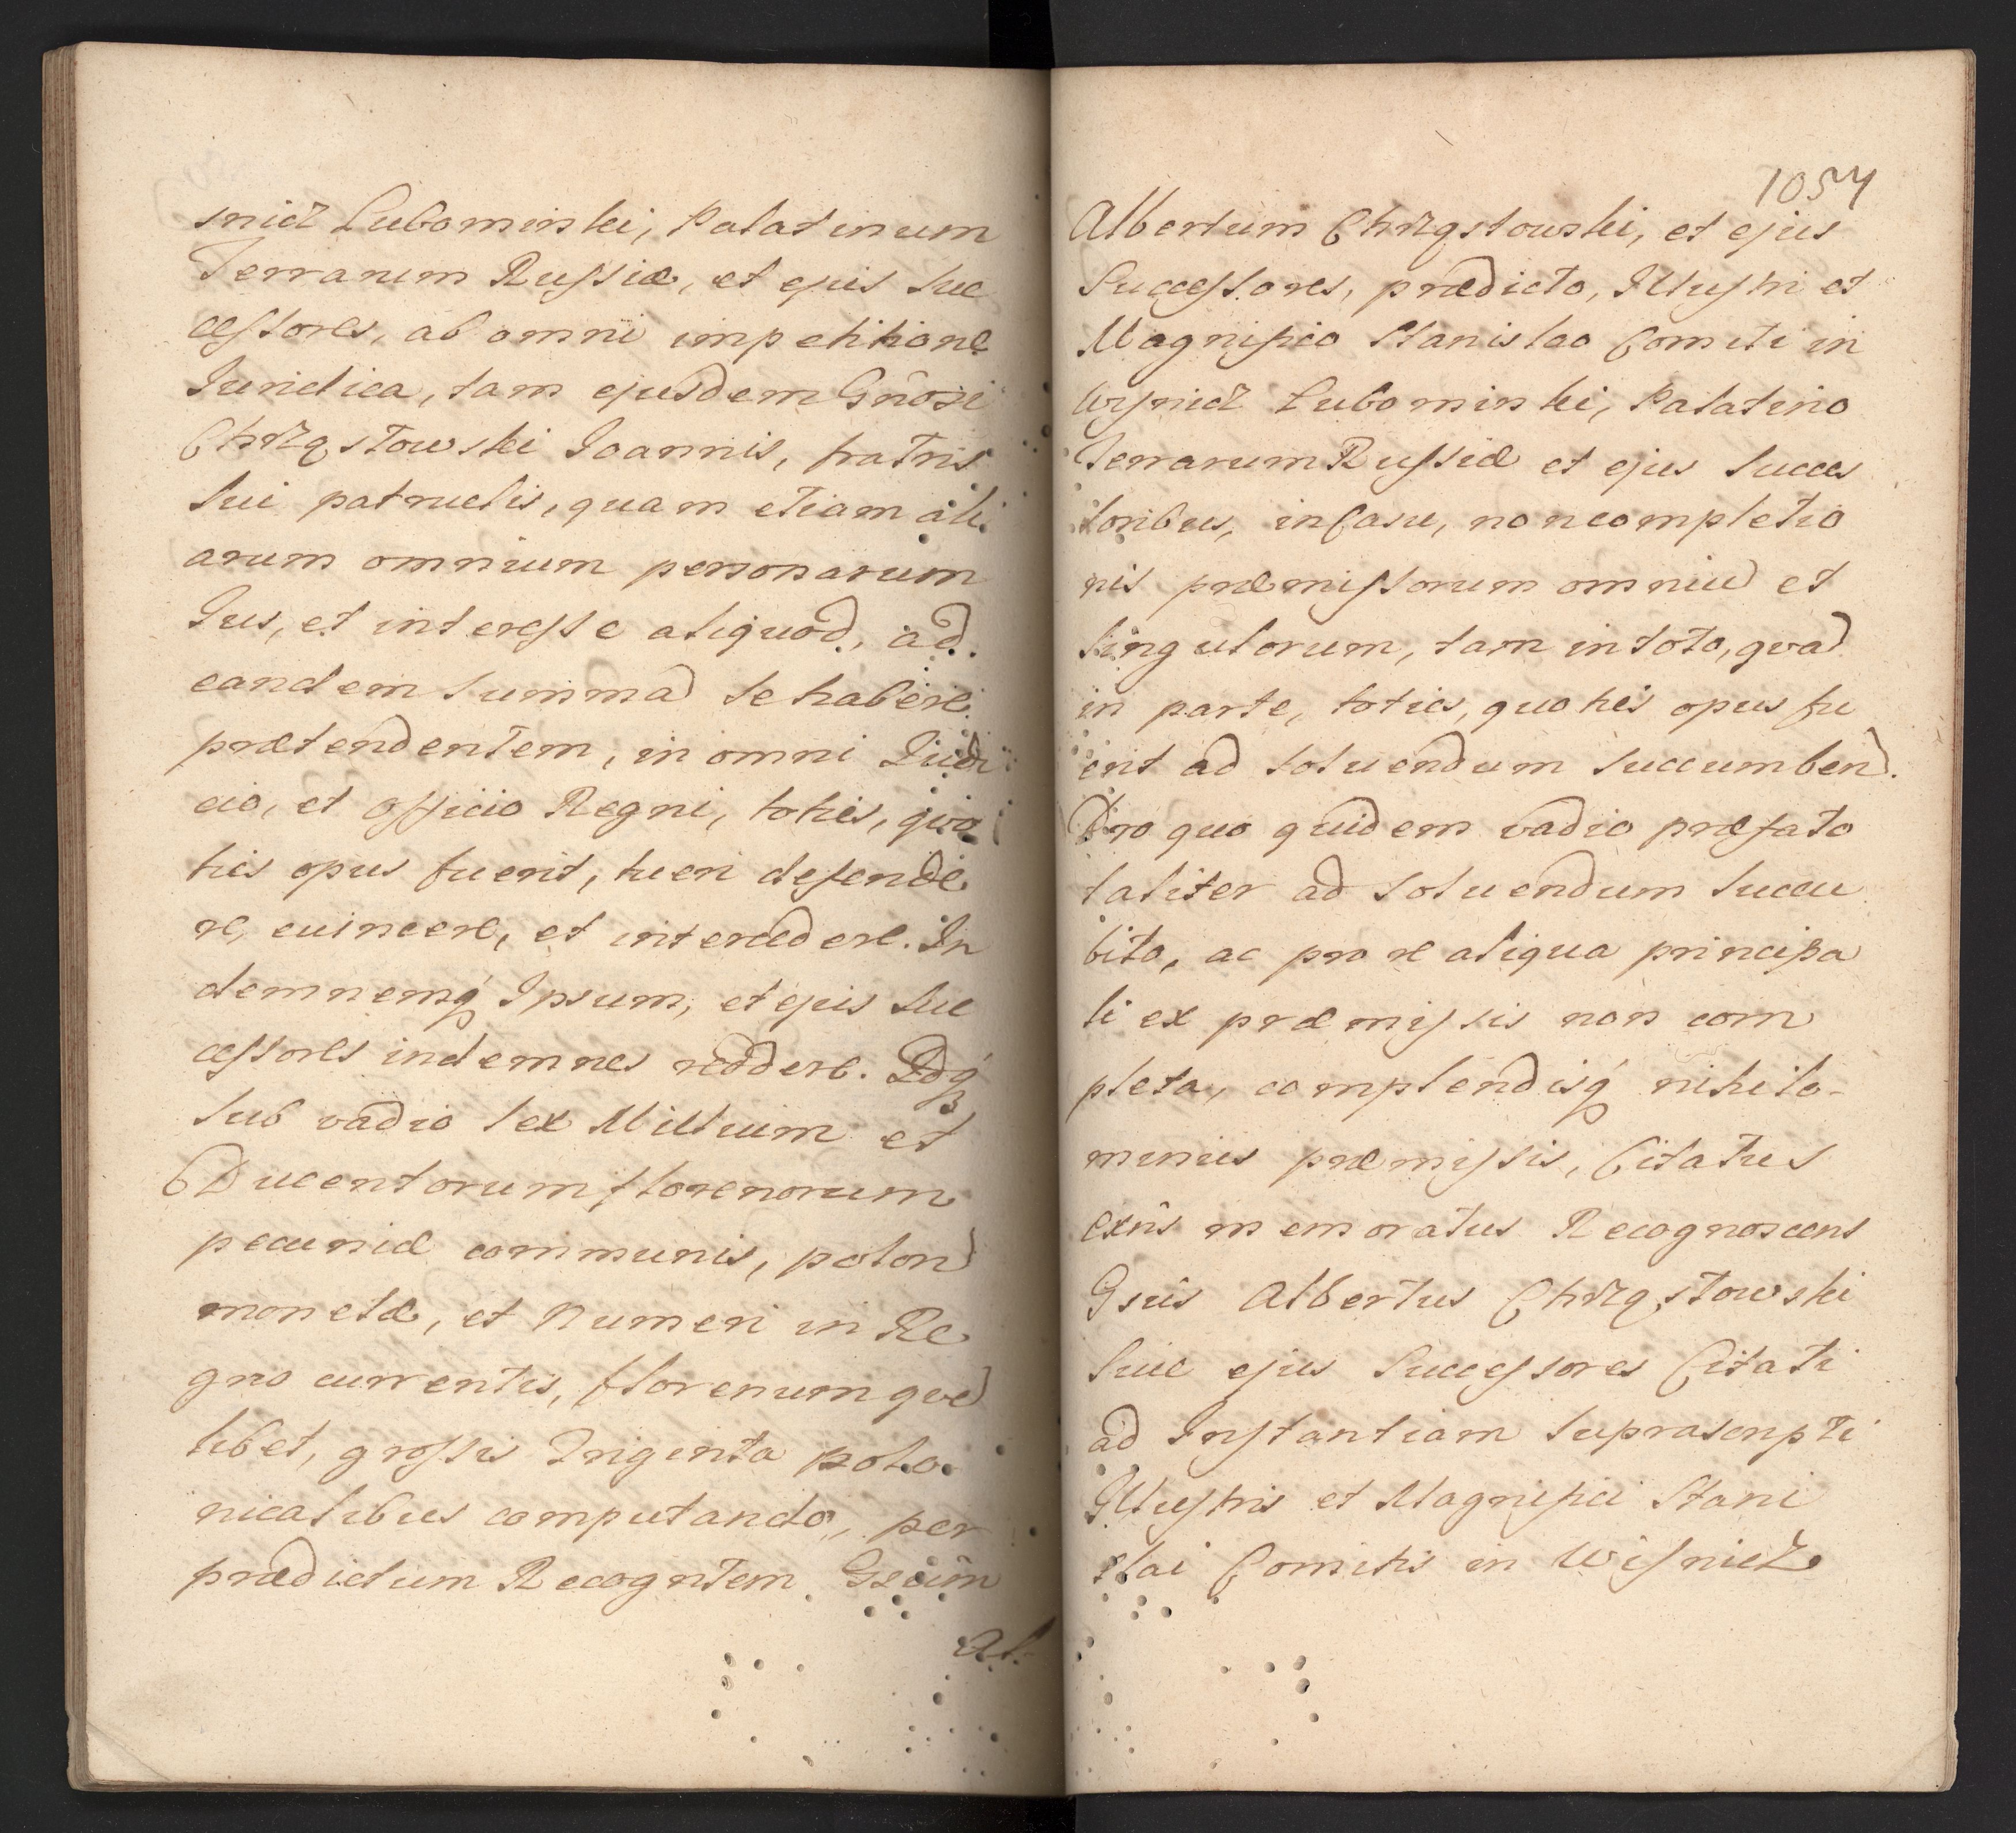 snicz Lubomirski, Palatinum
Terrarum Russiæ, et ejus Suc
cessores, ab omni impetitione
Iuridica, tam ejusdem Gñosi
Chrząstowski Ioannis, fratris
sui patruelis, quam etiam ali
arum omnium personarum
Ius, et interesse aliquod, ad
eandem summã se habere
prætendentem, in omni Iudi
cio, et officio Regni, toties, quo
ties opus fuerit, tueri defende
re, euincere, et intercedere. In
demnemq́ Ipsum, et ejus Suc
cessores indemnes reddere. Idq́
sub vadio sex Millium et
Ducentorum florenorum
pecuniæ communis, polon
monetæ, et numeri in Re
gno currentis, florenum quẽ
libet, grossis Triginta polo
nicalibus computando, per
prædictum Recogntem Gsum
Al.
1054
Albertum Chrząstowski, et ejus
Successores, prædicto, Illustri et
Magnifico Stanislao Comiti in
Wisnicz Lubomirski, Palatino
Terrarum Russiæ et ejus Succes
soribus, in Casu, non completio
nis præmissorum omniũ et
singulorum, tam in toto, quã
in parte, toties, quoties opus fu
erit ad soluendum succumbend.
Pro quo quidem vadio præfato
taliter ad soluendum succu
bito, ac pro re aliqua principa
li ex præmissis non com
pleta, complendisq́ nihilo-
minus præmissis, Citatus
exñs memoratus Recognoscens
Gsus Albertus Chrząstowski
siue ejus Successores Citati
ad Instantiam suprascripti
Illustris et Magnifici Stani
slai Comitis in Wisnicz